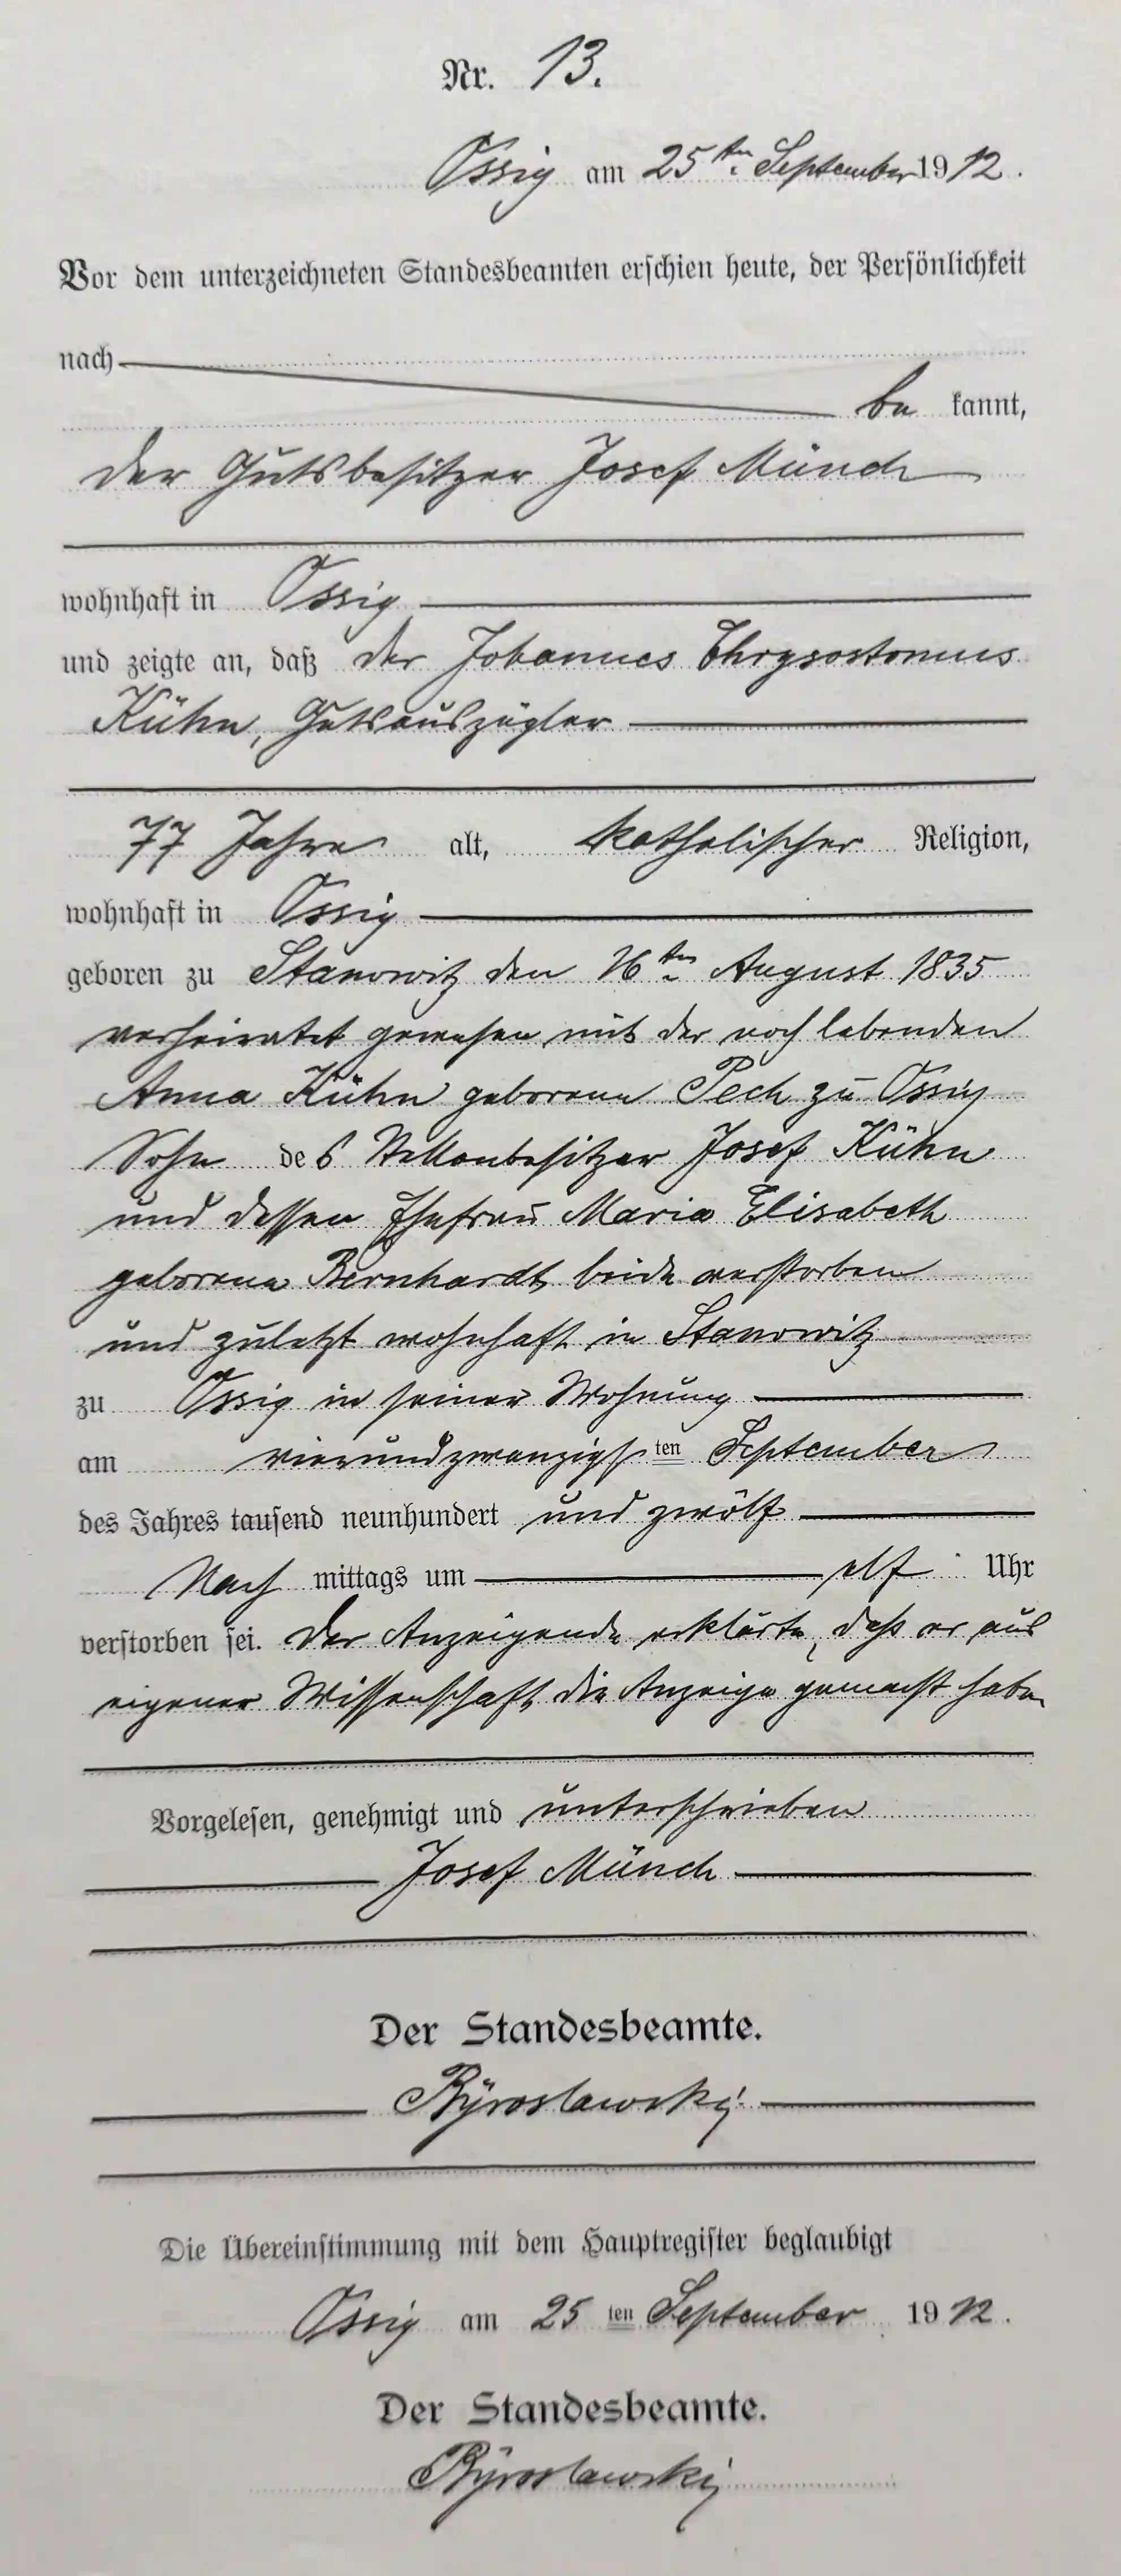 Nr. 13.
Ossig am 25ten September 1912.
Vor dem unterzeichneten Standesbeamten erschien heute, der Persönlichkeit
nach
be kannt,
der Gutsbesitzer Josef Münch
wohnhaft in Ossig
und zeigte an, daß der Johannes Chrysostomus
Kühn, Gutsauszügler
77 Jahre alt, katholischer Religion,
wohnhaft in Ossig
geboren zu Stanowitz den 16ten August 1835
verheiratet gewesen mit der noch lebenden
Anna Kühn geborene Pech zu Ossig
Sohn des Stellenbesitzer Josef Kühn
und dessen Ehefrau Maria Elisabeth
geborene Bernhardt beide verstorben
und zuletzt wohnhaft in Stanowitz
zu Ossig in seiner Wohnung
am vierundzwanzigsten September
des Jahres tausend neunhundert und zwölf
Nach mittags um elf Uhr
verstorben sei. Der Anzeigende erklärte, daß er aus
eigener Wissenschaft die Anzeige gemacht habe
Vorgelesen, genehmigt und unterschrieben
Josef Münch
Der Standesbeamte.
Die Übereinstimmung mit dem Hauptregister beglaubigt
Ossig am 25 ten September 1912.
Der Standesbeamte.